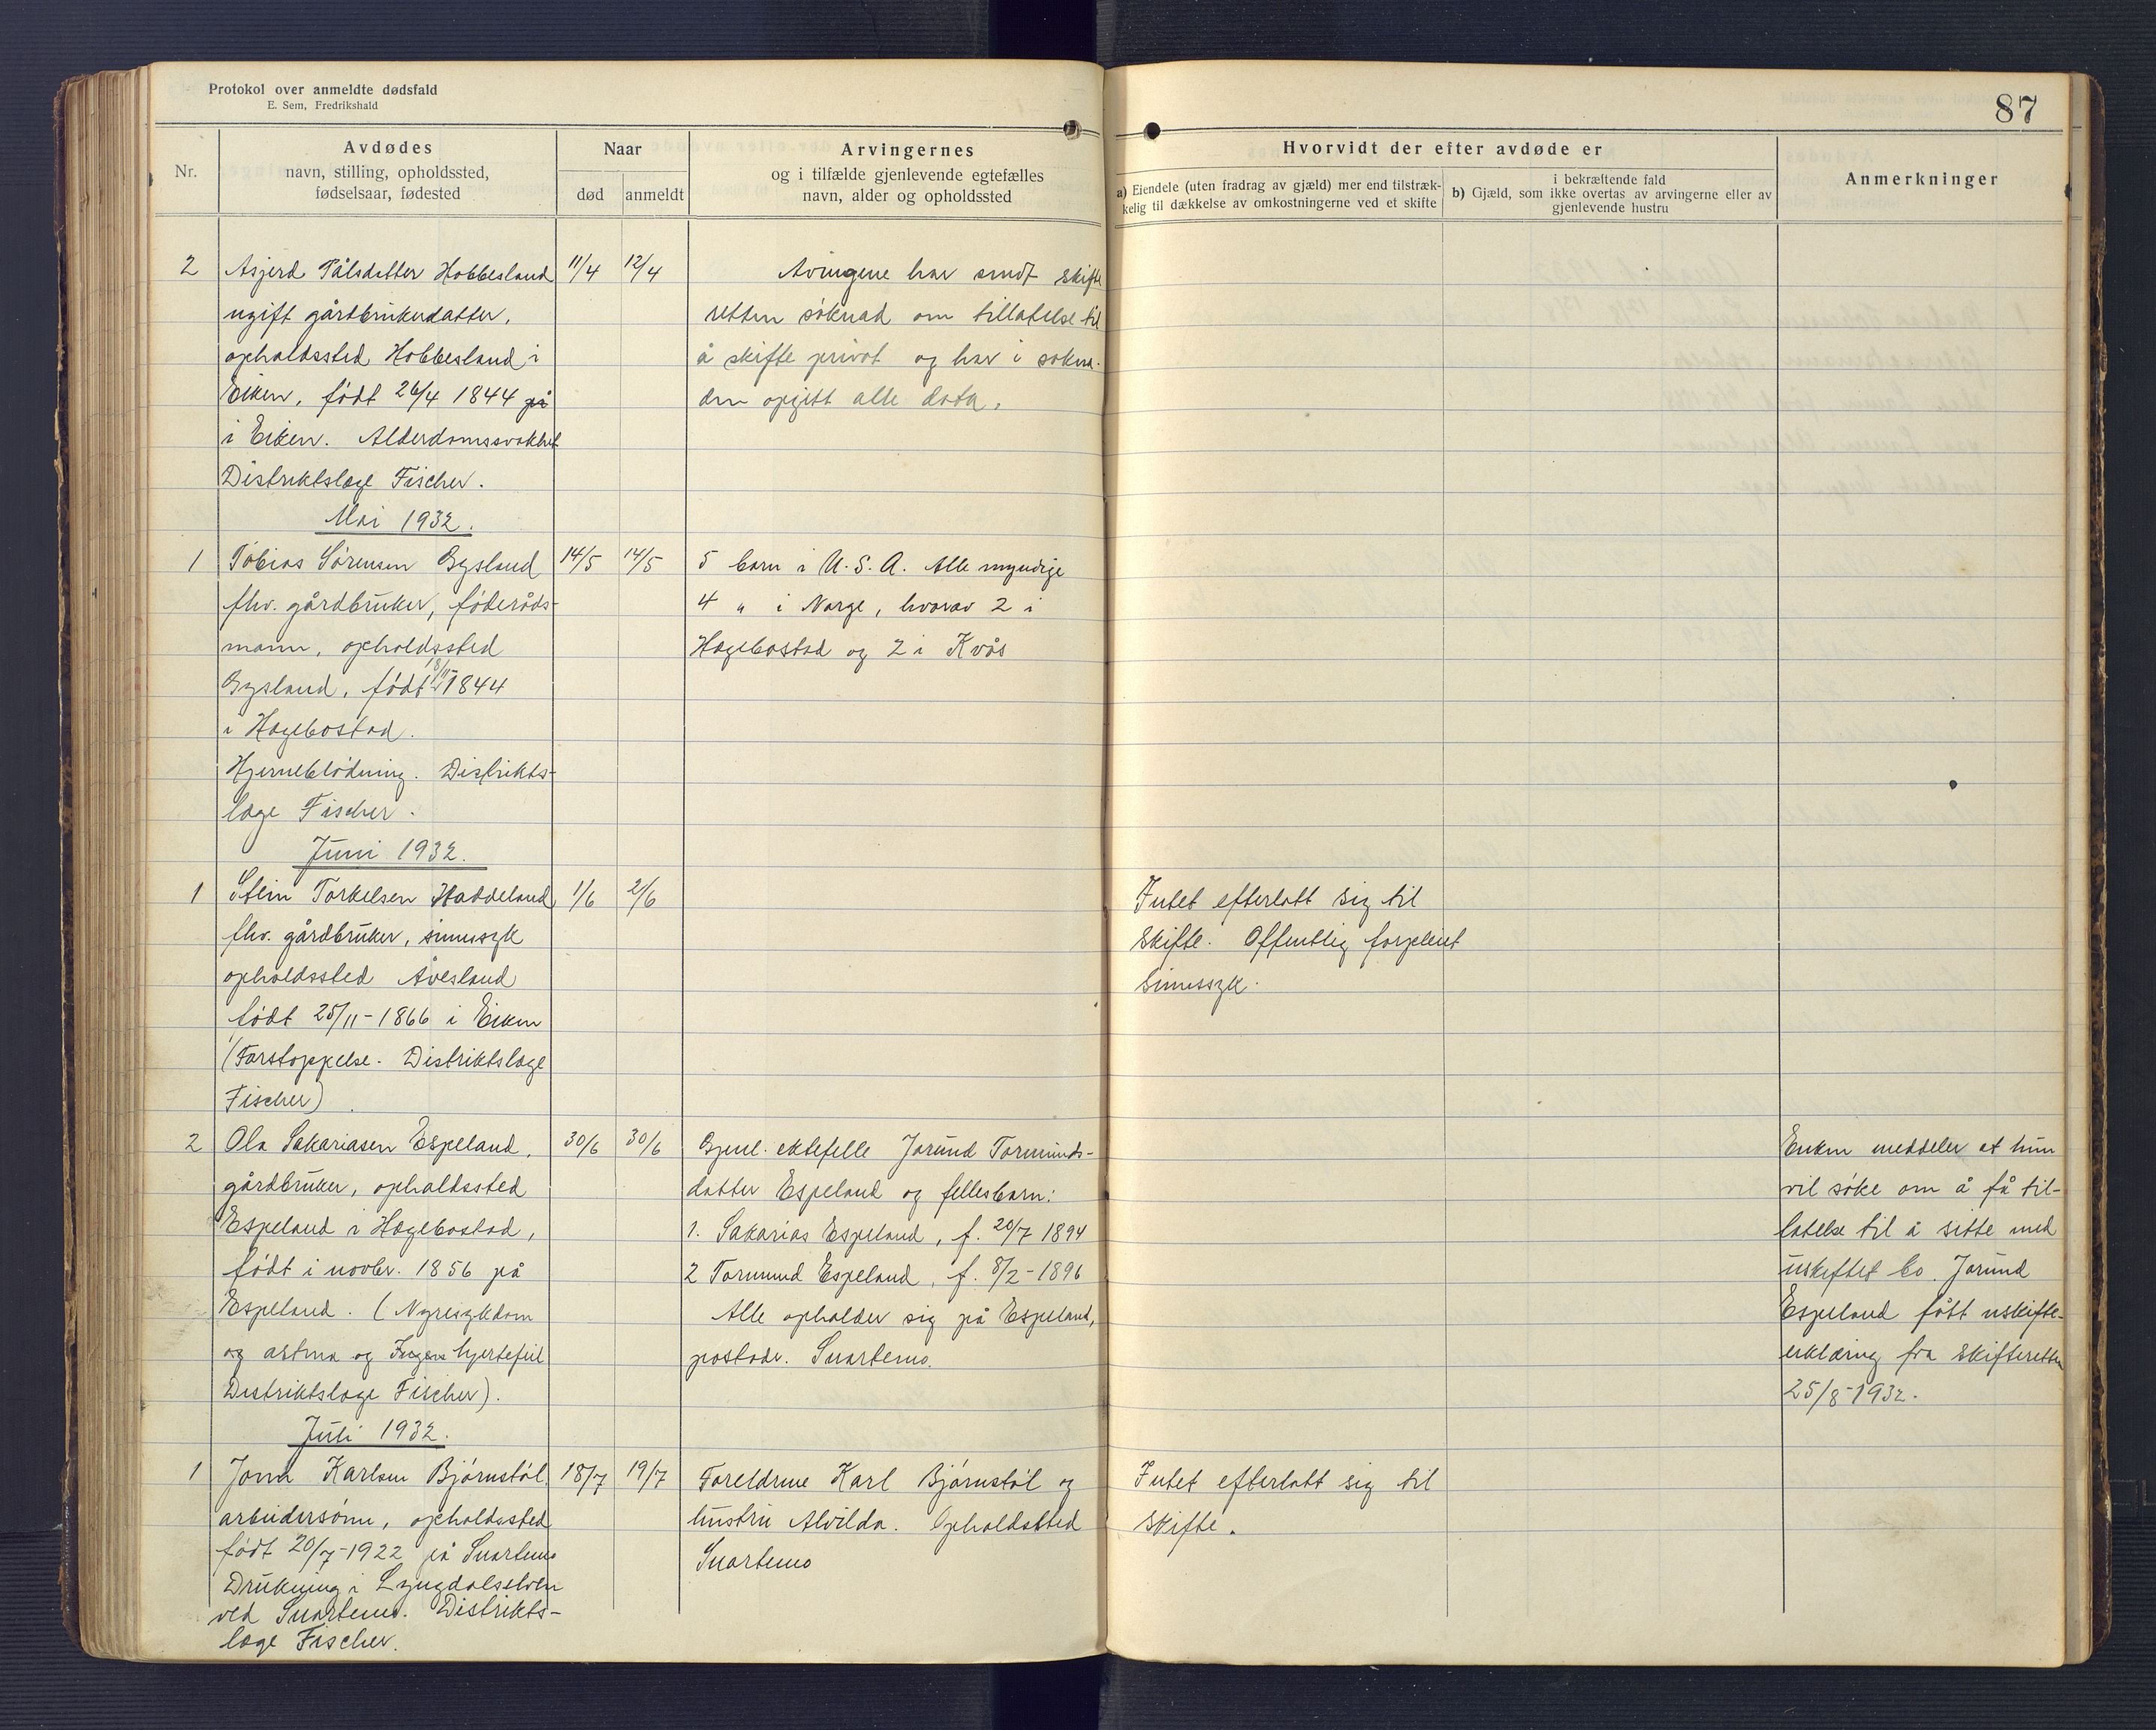 Protokol over anmeldte dødsfald
E. Sem, Fredrikshald
87
Nr.
Avdødes
navn, stilling, opholdssted,
fødselsaar, fødested
Naar
død
anmeldt
Arvingernes
og i tilfælde gjenlevende egtefælles
navn, alder og opholdssted
Hvorvidt der efter avdøde er
a) Eiendele (uten fradrag av gjæld) mer end tilstræk-
kelig til dækkelse av omkostningerne ved et skifte
i bekræftende fald
b) Gjæld, som ikke overtas av arvingerne eller av
gjenlevende hustru
Anmerkninger
2
Asjerd Pålsdatter Hobbesland
ugift gårdbrukerdatter,
opholdssted Hobbesland i
Eiken, født 26/4 1844 på
i Eiken. Alderdomssvakhet
Distriktslæge Fischer.
11/4
12/4
Avingene har sendt skifte
retten søknad om tillatelse til
å skifte privat og har i søkna-
den opgitt alle data.
Mai 1932.
1
Tobias Sørensen Gysland
fhv. gårdbruker, føderåds-
mann, opholdssted
Gysland, født 1844
i Hægebostad.
Hjerneblødning. Distrikts-
læge Fischer.
14/5
14/5
5 barn i U.S.A. Alle myndige
4 " i Norge, hvorav 2 i
Hægebostad og 2 i Kvås
Juni 1932.
1
Stein Torkelsen Haddeland
fhv. gårdbruker, sinnssyk
opholdssted Åvesland
født 25/11-1866 i Eiken
(Forstoppelse. Distriktslæge
Fischer)
1/6
2/6
Intet efterlatt sig til
skifte. Offentlig forpleiet
sinnssyk.
2
Ola Sakariasen Espeland,
gårdbruker, opholdssted
Espeland i Hægebostad,
født i novbr. 1856 på
Espeland. (Nyresykdom
og astma og hjertefeil
Distriktslæge Fischer).
30/6
30/6
Gjenl. ektefelle Jorund Tormunds-
datter Espeland og fellesbarn:
1. Sakarias Espeland, f. 20/7 1894
2 Tormund Espeland, f. 8/2-1896
Alle opholder sig på Espeland,
postadr. Snartemo.
Enken meddeler at hun
vil søke om å få til-
latelse til å sitte med
uskiftet bo. Jorund
Espeland fått uskifte-
erklæring fra skifteretten
25/8-1932.
Juli 1932.
1
Jonn Karlsen Bjørnstøl,
arbeidersønn, opholdssted
født 20/7-1922 på Snartemo
Drukning i Lyngdalselven
ved Snartemo. Distrikts-
læge Fischer.
18/7
19/7
Foreldrene Karl Bjørnstøl og
hustru Alvilda. Opholdssted
Snartemo
Intet efterlatt sig til
skifte.